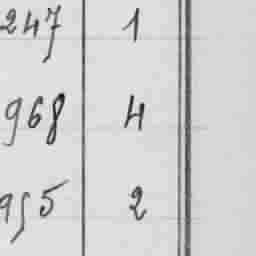 247 1
968 4
955 2